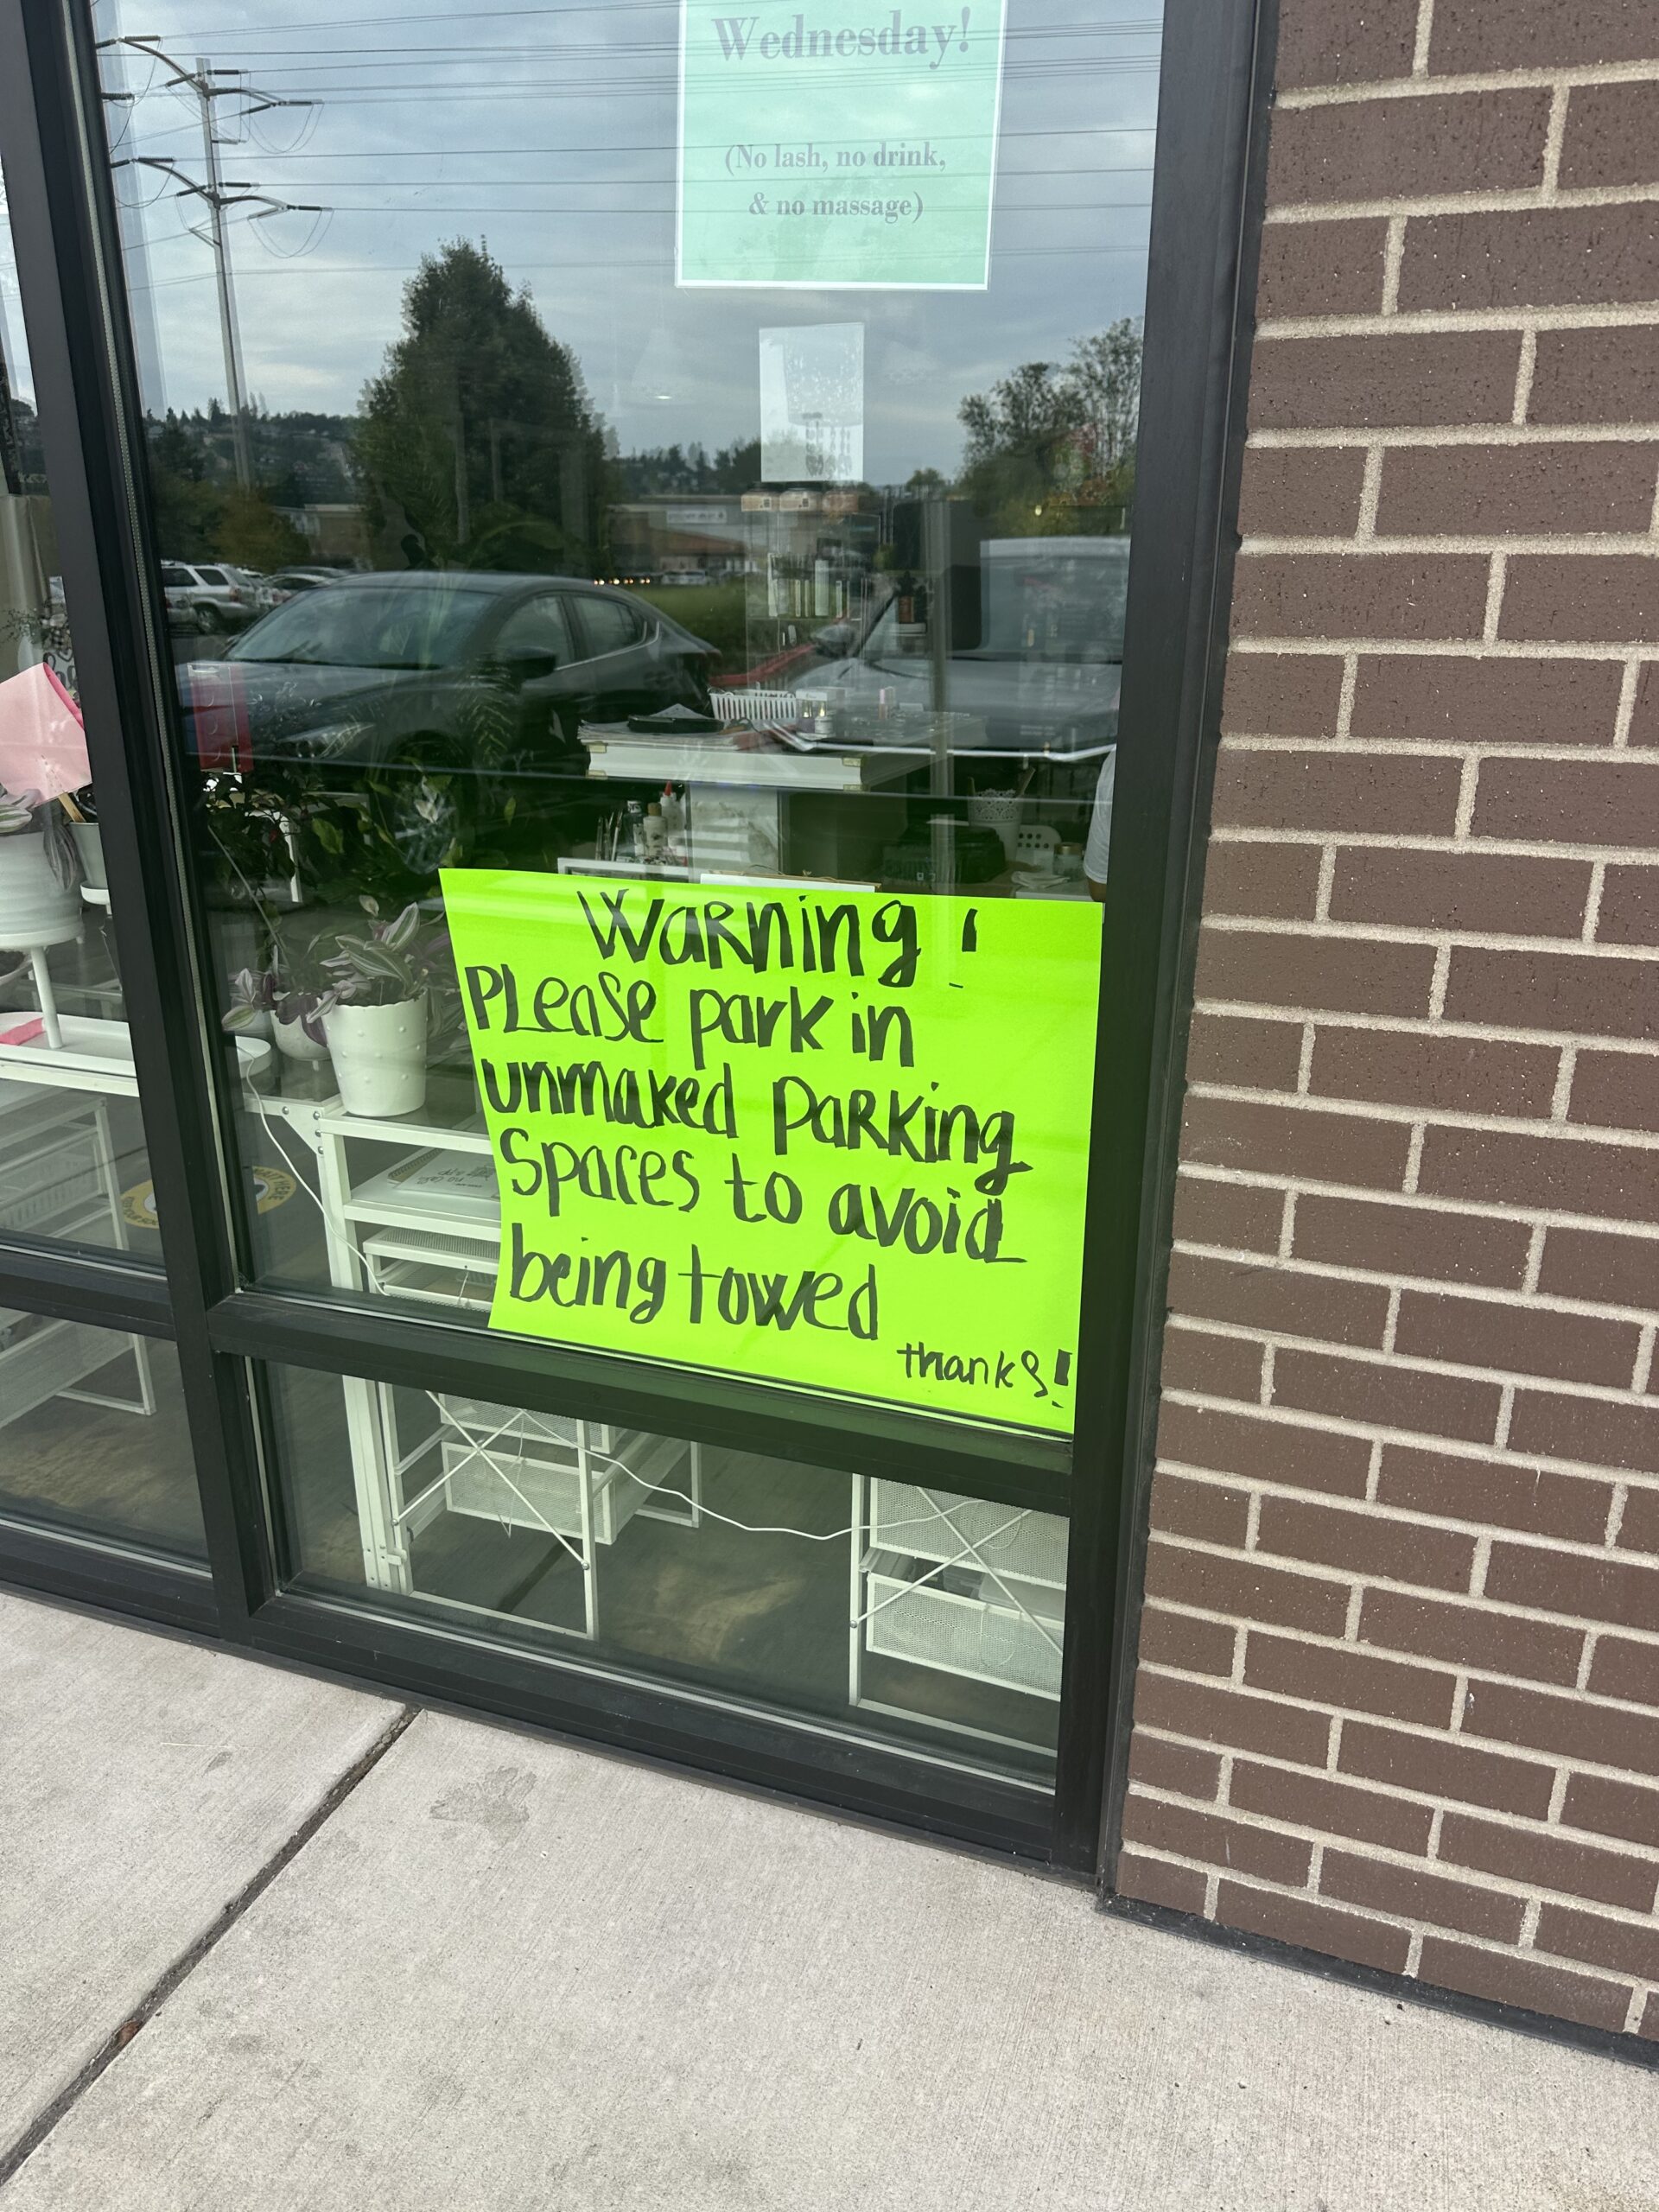 Wednesday!
(No lash, no drink,
& no massage)
Warning!
Please park in
unmaked parking
Spaces to avoid
being towed
thanks!